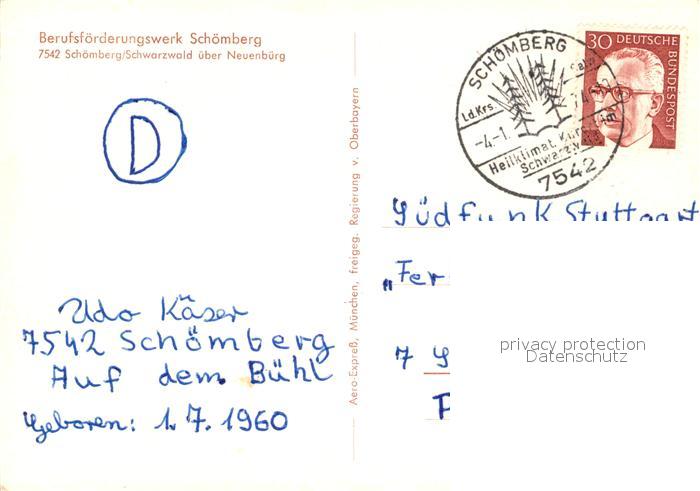 Berufsförderungswerk Schömberg
7542 Schömberg/Schwarzwald über Neuenbürg
D
Udo Käser
7542 Schömberg
Auf dem Bühl
Geboren: 1.7.1960
Aero-Expreß, München, freigeg. Regierung v. Oberbayern
SCHÖMBERG
Ld.Krs. Calw
-4-1.
Heilklimat. Kurort
Schwarzwald
7542
30 DEUTSCHE
BUNDESPOST
Südfunk Stuttgart
„Fer
7 S
privacy protection
Datenschutz